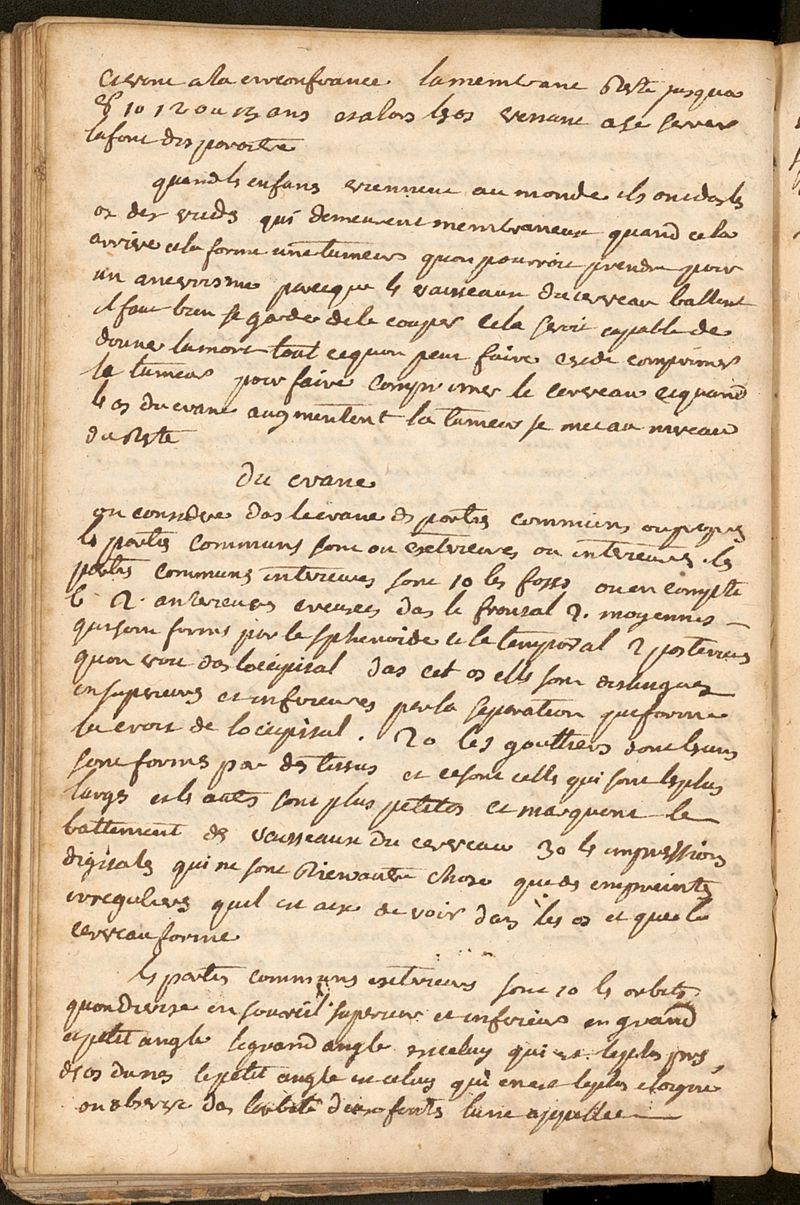 a la circonfrance la membrane reste jusqua
10 12 ou 13 ans et alors les os viennent a se serrer
la font disparoitre
quand les enfans viennent au monde ils ont das les
os des vuides qui demeurent membraneux quand cela
arrive cela forme une tumeur quon pourroit prendre pour
un anevrisme parceque les vaisseaux du cerveau battent
il faut bien se garder de le couper cela seroit capable de
donner la mort tout ce quon peut faire est de comprimer
la tumeur pour faire comprimer le cerveau et quand
les os du crane augmentent la tumeur se met au niveau
du reste
du crane
on considere das le crane des parties communes ou propres
les parties communes sont ou exterieures ou interieures les
parties communes interieures sont 1o les fosses ou en compte
6 2 anterieures creusees das le frontal 2 moyennes
qui sont formes par le sphenoide et le temporal 2 posterieures
quon voit das loccipital das cet os elles sont distinguees
en superieures et inferieures par la separation que forme
la croix de loccipital. 2o les gouttieres dont les uns
sont formes par des sinus et ce sont celles qui sont les plus
larges et les autres sont plus petites et marquent le
battement des vaisseaux du cerveau 3o les impressions
digitales qui ne sont rien autre chose que des empreintes
irregulieres quil est aise de voir das les os et que le
cerveau forme
les parties communes exterieures sont 1o les orbites
quon divise en sourcil superieur et inferieur en grand
et petit angle le grand angle est celuy qui est le plus pres
des os du nes le petit angle est celuy qui en est le plus eloigné
on observe das lorbite deux fentes lune appellee